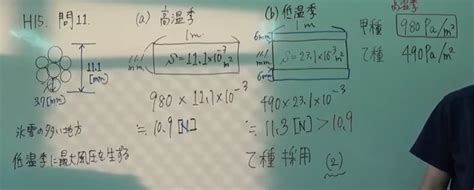 H15. 問11.
11.1
[mm]
3.7[mm]
氷雪の多い地方
低温季に最大風圧を生ずる
(a) 高温季
1m
11.1
[mm]
S=11.1×10⁻³m²
980 × 11.1×10⁻³
≒ 10.9 [N]
(b) 低温季
1m
6mm
11.1
[mm]
6mm
S=23.1×10⁻³m²
490×23.1×10⁻³
≒ 11.3 [N] > 10.9
乙種 採用 (2)
高温季
甲種 980Pa/m²
乙種 490Pa/m²